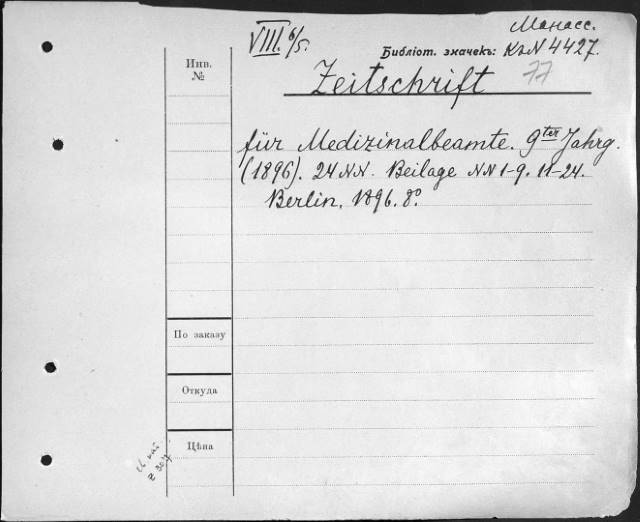 VIII. 6/5.
Манасс.
Библіот. значекъ: К2N 4427.
Инв.
№
Zeitschrift 77
für Medizinalbeamte. 9ter Jahrg.
(1896). 24 NN. Beilage NN 1-9. 11-24.
Berlin, 1896. 8°.
По заказу
Откуда
Цѣна